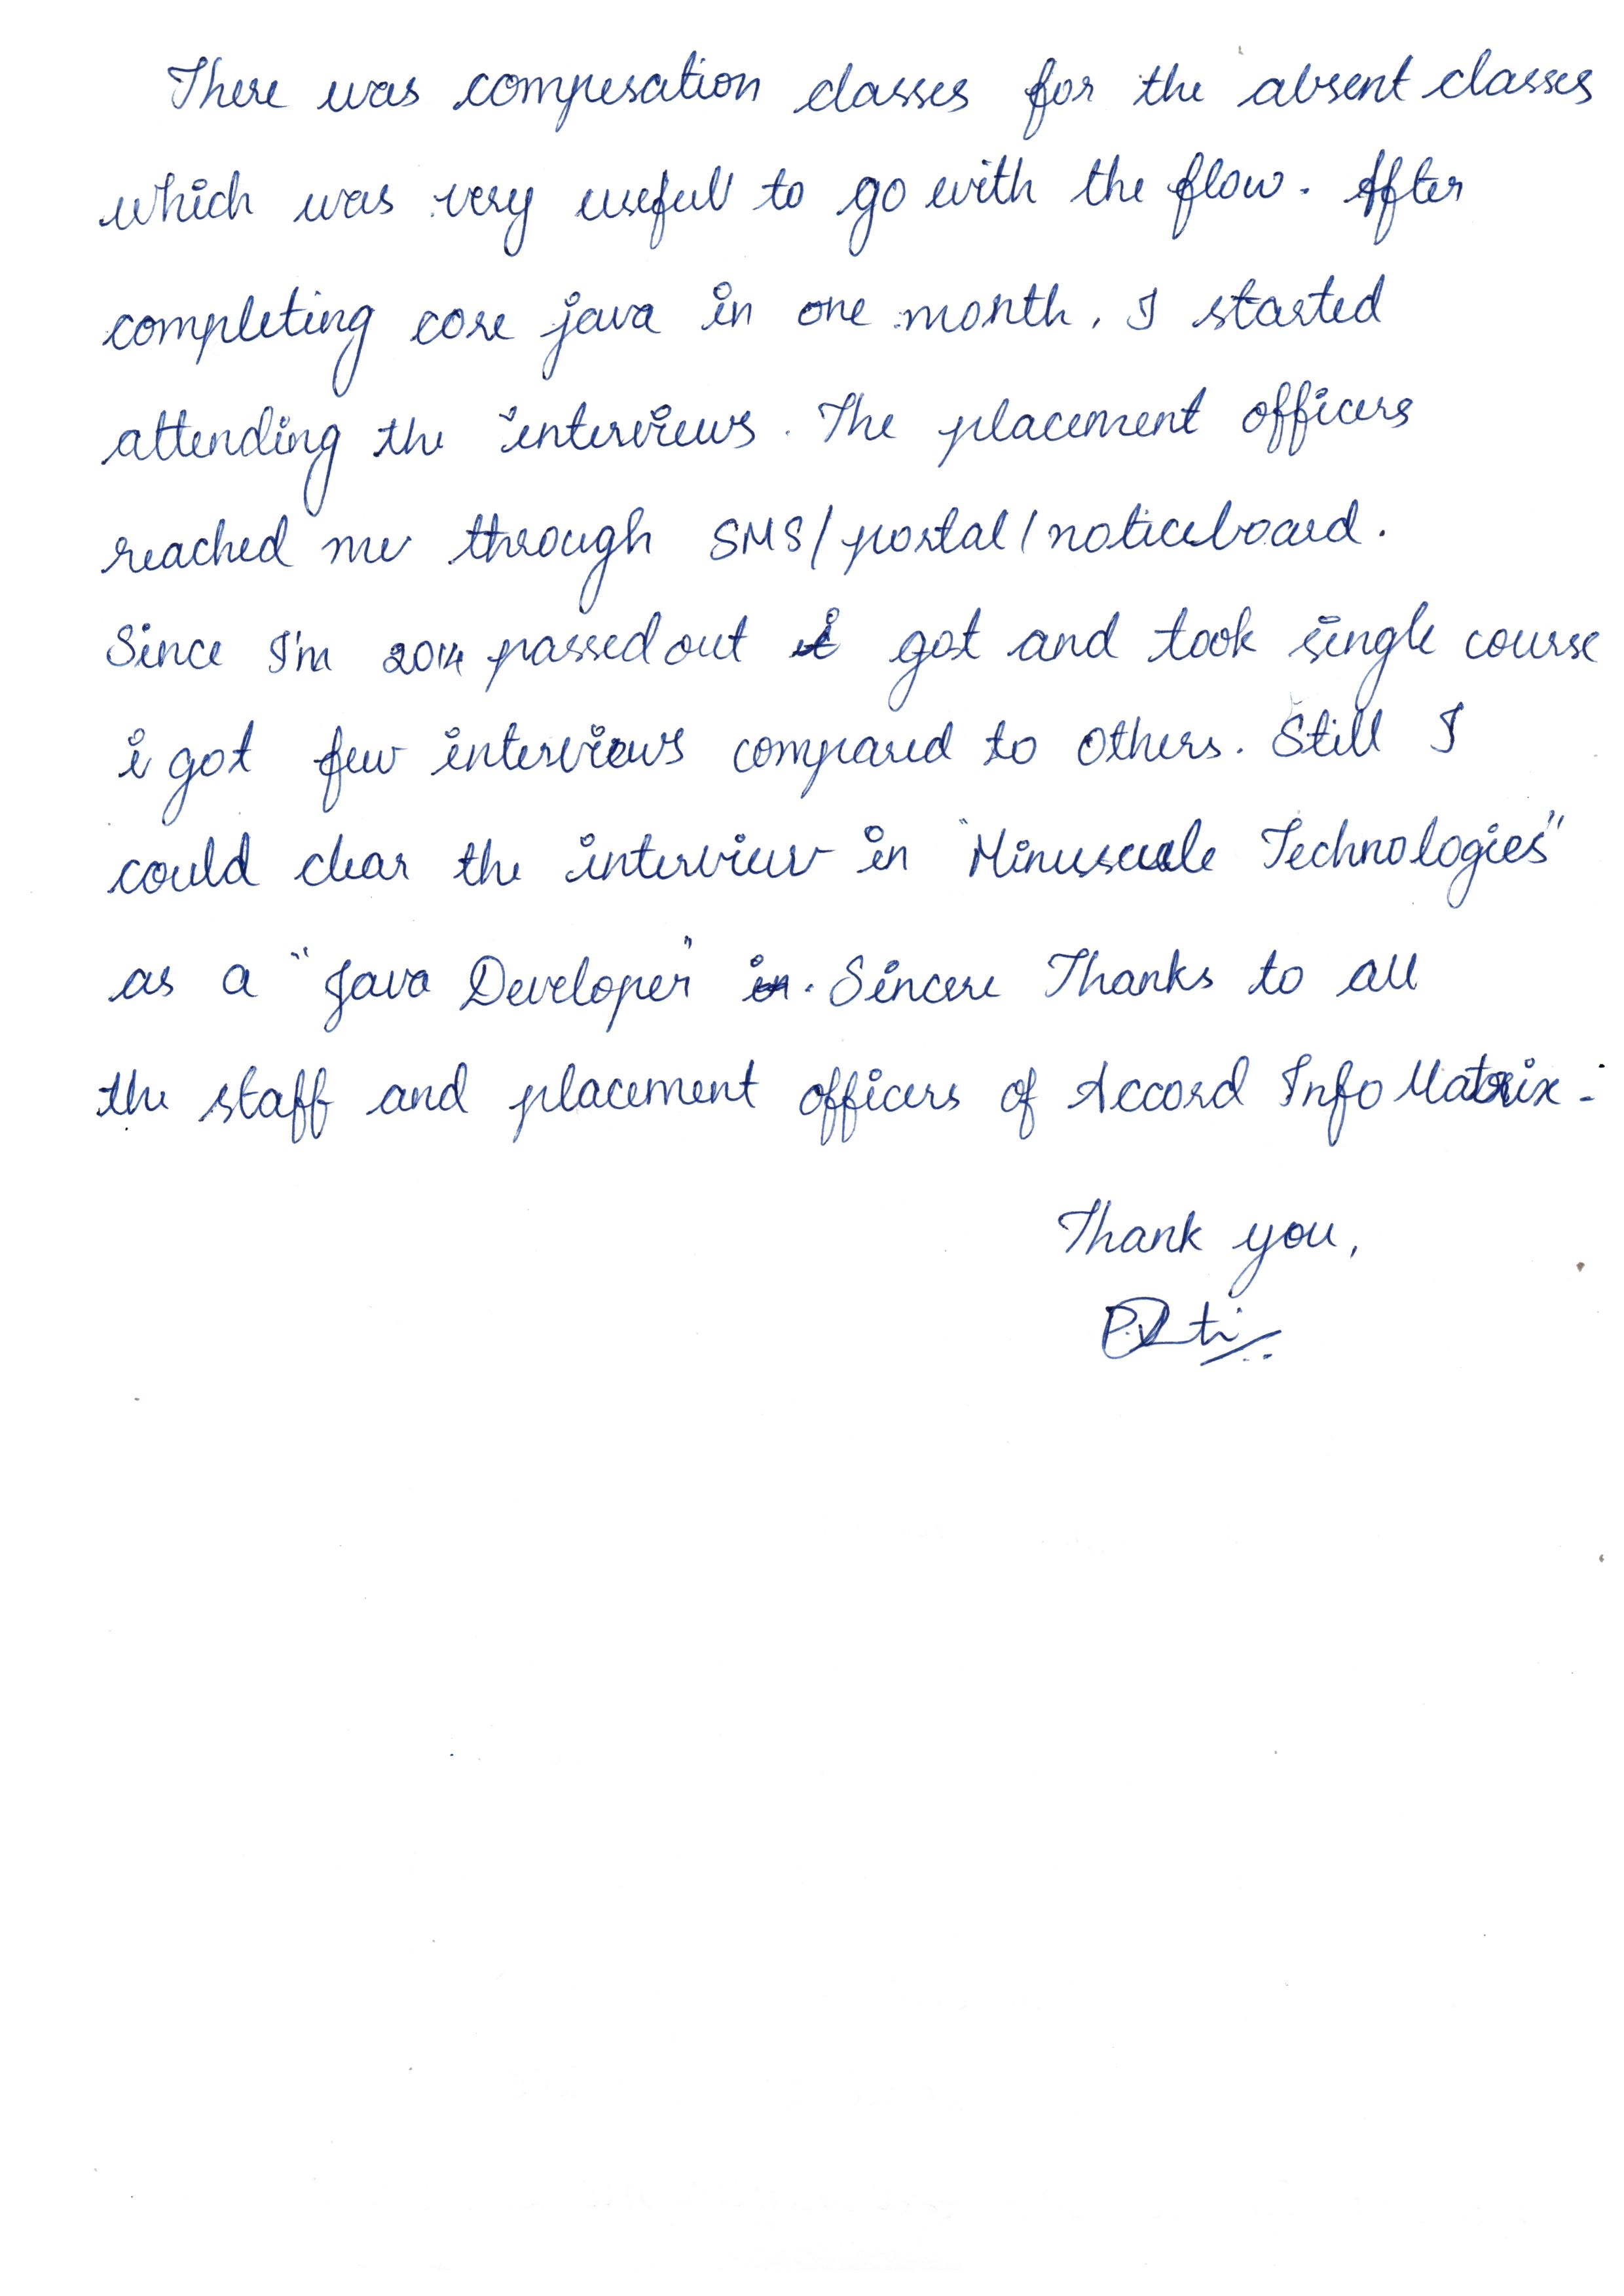 There was compesation classes for the absent classes
which was very usefull to go with the flow. After
completing core java in one month, I started
attending the interviews. The placement officers
reached me through SMS/portal/noticeboard.
Since I'm 2014 passed out got and took single course
i got few interviews compared to others. Still I
could clear the interview in "Minuscule Technologies"
as a "Java Developer" . Sincere Thanks to all
the staff and placement officers of Accord Info Matrix.
Thank you,